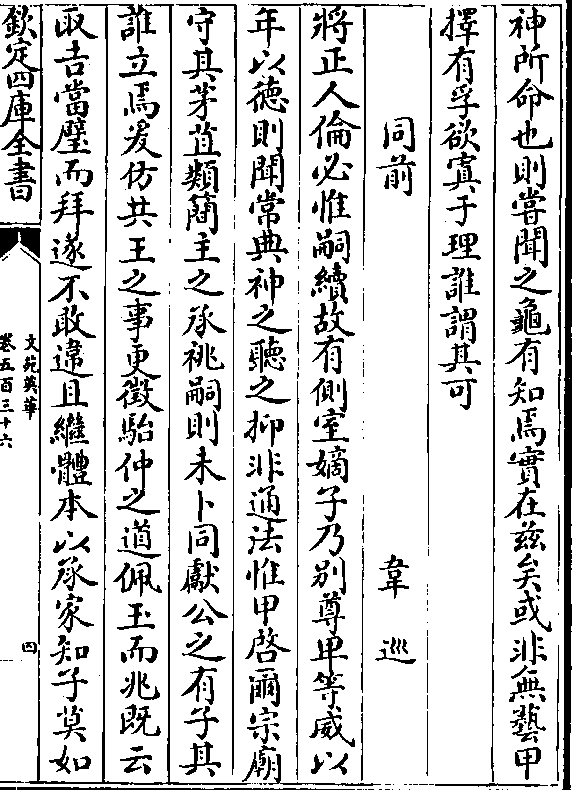 神所命也則嘗聞之龜有知焉實在茲矣或非無藝甲
擇有孚欲寘于理誰謂其可
同前 韋巡
將正人倫必惟嗣續故有側室嫡子乃别尊卑等威以
年以德則聞常典神之聽之抑非通法惟甲啓爾宗廟
守其茅苴類簡主之承祧嗣則未卜同獻公之有子其
誰立焉爰仿共王之事更徵駘仲之道佩玉而兆既云
取吉當璧而拜遂不敢違且繼體本以承家知子莫如
欽定四庫全書
文苑英華
卷五百三十六
四